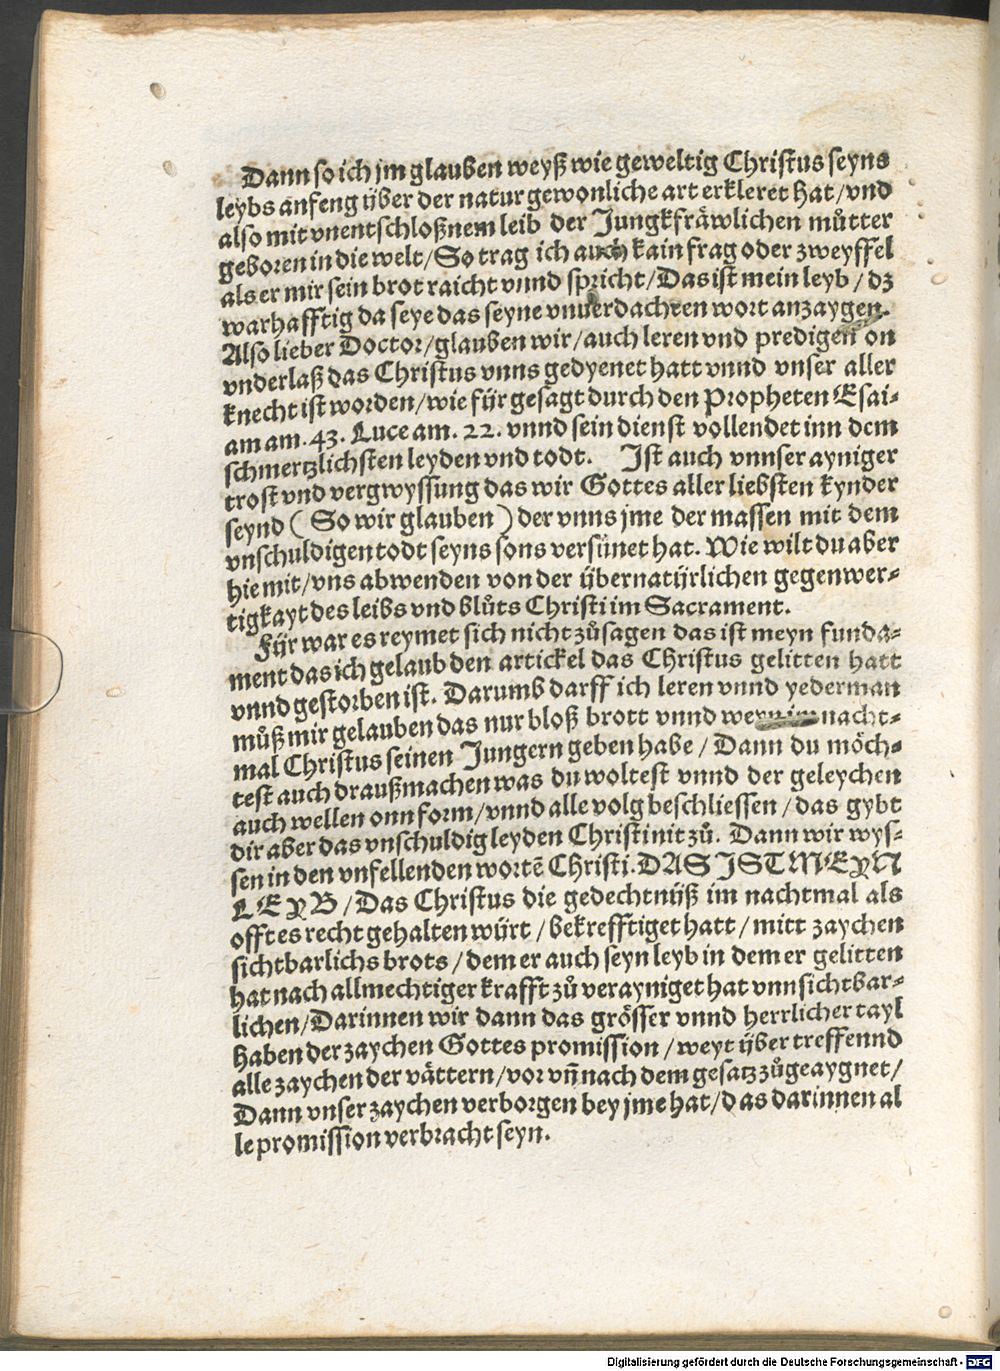 Dann so ich jm glauben weyß wie geweltig Christus seyns
leybs anfeng über der natur gewonliche art erkleret hat/vnd
also mit vnentschloßnem leib der Jungkfräwlichen můtter
geboren in die welt/So trag ich auch kain frag oder zweyffel
als er mir sein brot raicht vnnd spricht/Das ist mein leyb/dz
warhafftig da seye das seyne vnuerdachten wort anzaygen.
Also lieber Doctor/glauben wir/auch leren vnd predigen on
vnderlaß das Christus vnns gedyenet hatt vnnd vnser aller
knecht ist worden/wie fijr gesagt durch den Propheten Esai⸗
am am.43. Luce am.22. vnnd sein dienst vollendet inn dem
schmertzlichsten leyden vnd todt. Ist auch vnnser ayniger
trost vnd vergwyssung das wir Gottes aller liebsten kynder
seynd (So wir glauben) der vnns jme der massen mit dem
vnschuldigen todt seyns sons versünet hat. Wie wilt du aber
hie mit/vns abwenden von der ijbernatijrlichen gegenwer⸗
tigkayt des leibs vnd blůts Christi im Sacrament.
Fijr war es reymet sich nicht zůsagen das ist meyn funda⸗
ment das ich gelaub den artickel das Christus gelitten hatt
vnnd gestorben ist. Darumb darff ich leren vnnd yederman
můß mir gelauben das nur bloß brott vnnd weyn im nacht⸗
mal Christus seinen Jungern geben habe/Dann du möch⸗
test auch draußmachen was du woltest vnnd der geleychen
auch wellen onn form/vnnd alle volg beschliessen/das gybt
dir aber das vnschuldig leyden Christi nit zů. Dann wir wys⸗
sen in den vnfellenden wortē Christi.DAS IST MEYN
LEYB/Das Christus die gedechtnijß im nachtmal als
offt es recht gehalten wijrt/bekrefftiget hatt/mitt zaychen
sichtbarlichs brots/dem er auch seyn leyb in dem er gelitten
hat nach allmechtiger krafft zů verayniget hat vnnsichtbar⸗
lichen/Darinnen wir dann das grösser vnnd herrlicher tayl
haben der zaychen Gottes promission/weyt ijber treffennd
alle zaychen der vättern/vor vn̄ nach dem gesatz zůgeaygnet/
Dann vnser zaychen verborgen bey jme hat/das darinnen al
le promission verbracht seyn.
Digitalisierung gefördert durch die Deutsche Forschungsgemeinschaft - DFG